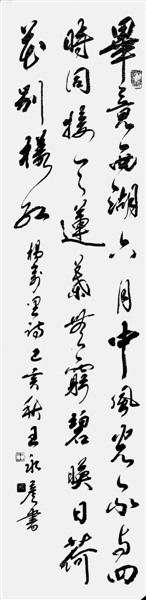 畢竟西湖六月中風光不與四
時同接天蓮葉無窮碧映日荷
花别樣紅 楊萬里詩己亥秋王永彦書